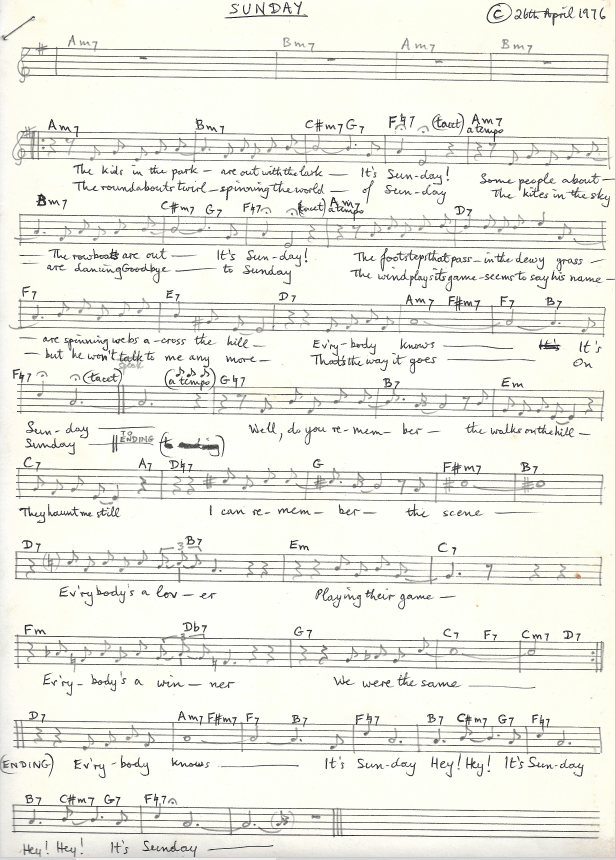 SUNDAY
© 26th April 1976
Am7 Bm7 Am7 Bm7
Am7 Bm7 C#m7 G7 F♮7 (tacet) Am7
a tempo
The kids in the park — are out with the lark — It's Sun-day! Some people about —
The roundabouts twirl — spinning the world — of Sun-day The kites in the sky
Bm7 C#m7 G7 F♮7 (tacet) Am7 D7
a tempo
— The rowboats are out — It's Sun-day! The footsteps that pass — in the dewy grass —
— are dancing Goodbye — to Sunday The wind plays its game — seems to say his name —
F7 E7 D7 Am7 F#m7 F7 B7
— are spinning webs a-cross the hill — Ev'ry-body knows — It's It's
— but he won't talk to me any more — That's the way it goes — On
F♮7 (tacet) (a tempo) G♮7 B7 Em
Sun-day — Well, do you re-mem-ber — the walks on the hill —
Sunday — TO ENDING
C7 A7 D♮7 G F#m7 B7
They haunt me still I can re-mem-ber — the scene —
D7 3 B7 Em C7
Ev'rybody's a lov-er Playing their game —
Fm Db7 3 G7 C7 F7 Cm7 D7
Ev'ry-body's a win-ner We were the same —
D7 Am7 F#m7 F7 B7 F♮7 B7 C#m7 G7 F♮7
(ENDING) Ev'ry-body knows — It's Sun-day Hey! Hey! It's Sun-day
B7 C#m7 G7 F♮7
Hey! Hey! It's Sunday —